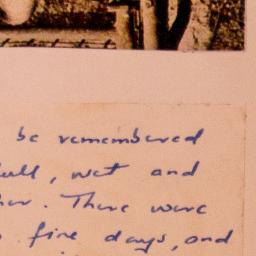 be remembered
, wet and
. There were
fine days, and